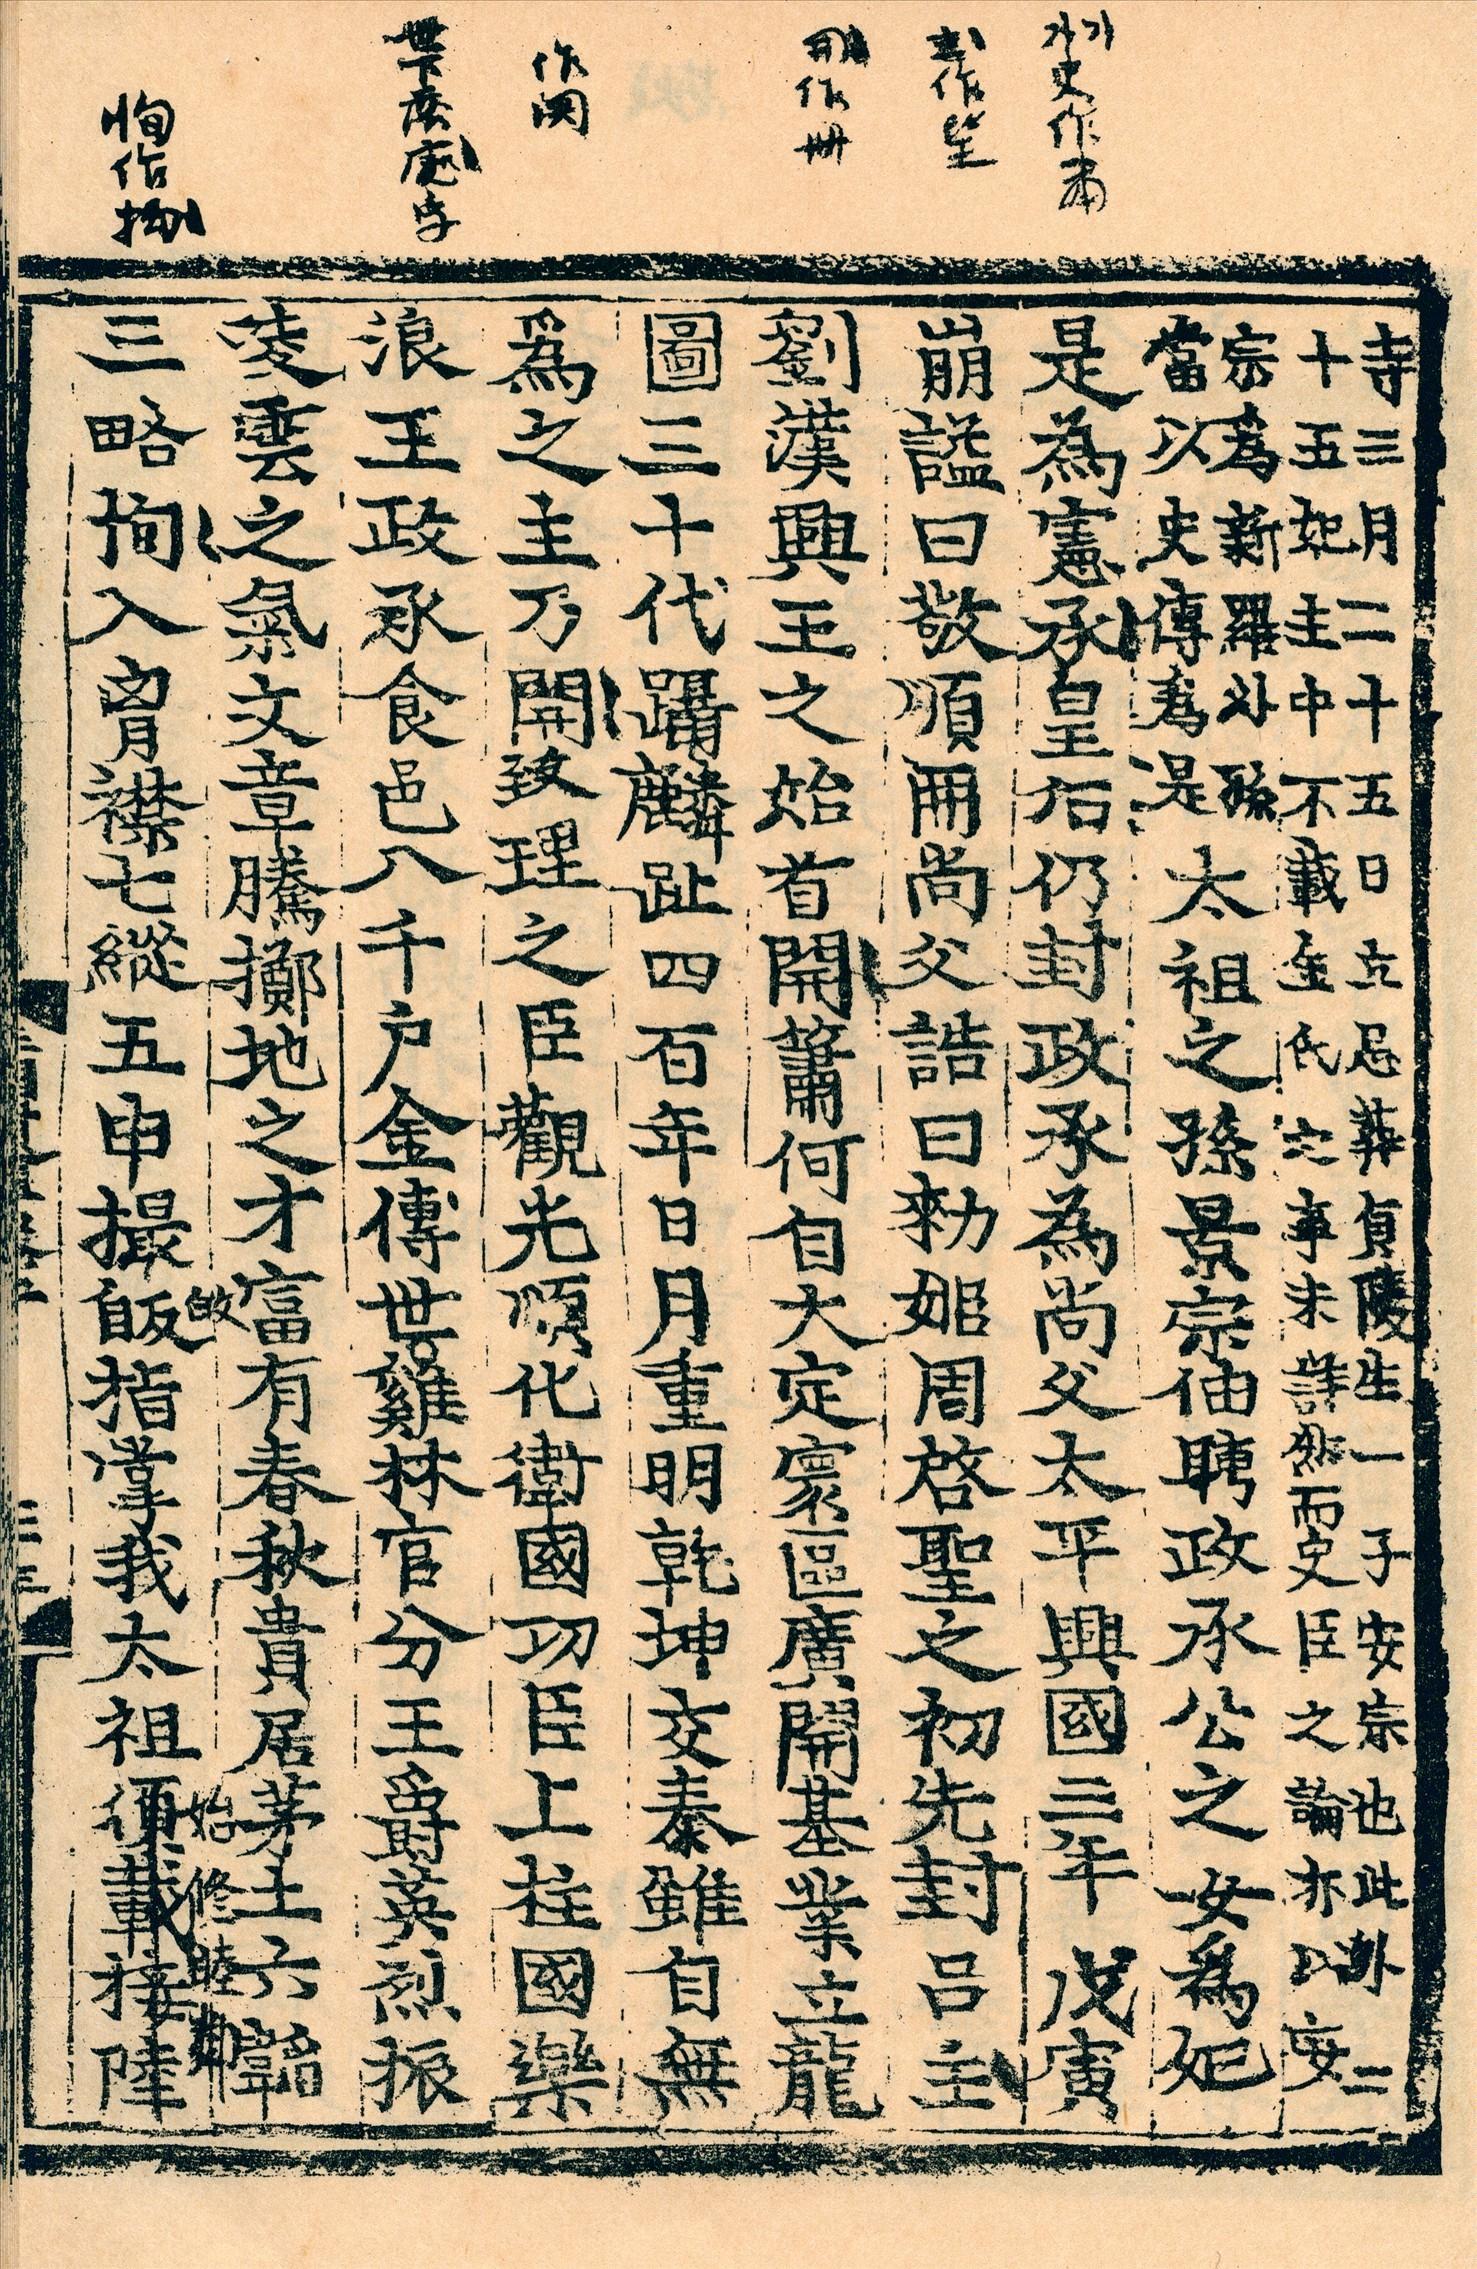 寺三月二十五日立忌葬貞陵生一子安宗也此外二
十五妃主中不載金氏之事未詳然而史臣之論亦以安
宗為新羅外孫
當以史傳為是
太祖之孫景宗伷聘政承公之女為妃
是為憲承皇后仍封政承為尚父太平興國三年戊寅
崩謚曰敬順冊尚父誥曰勑姬周啓聖之初先封呂主
劉漢興王之始首開簫何自大定寰區廣開基業立龍
圖三十代躡麟趾四百年日月重明乾坤交泰雖自無
爲之主乃開致理之臣觀光順化衛國功臣上柱國樂
浪王政承食邑八千户金傳世雞林官分王爵英烈振
凌雲之氣文章騰擲地之才富有春秋貴居茅土六韜
三略拘入胷襟七縱五申撮皈指掌我太祖須載接陸
史作甫
作坐
作冊
作関
世下落處字
恂作拘
始修睦